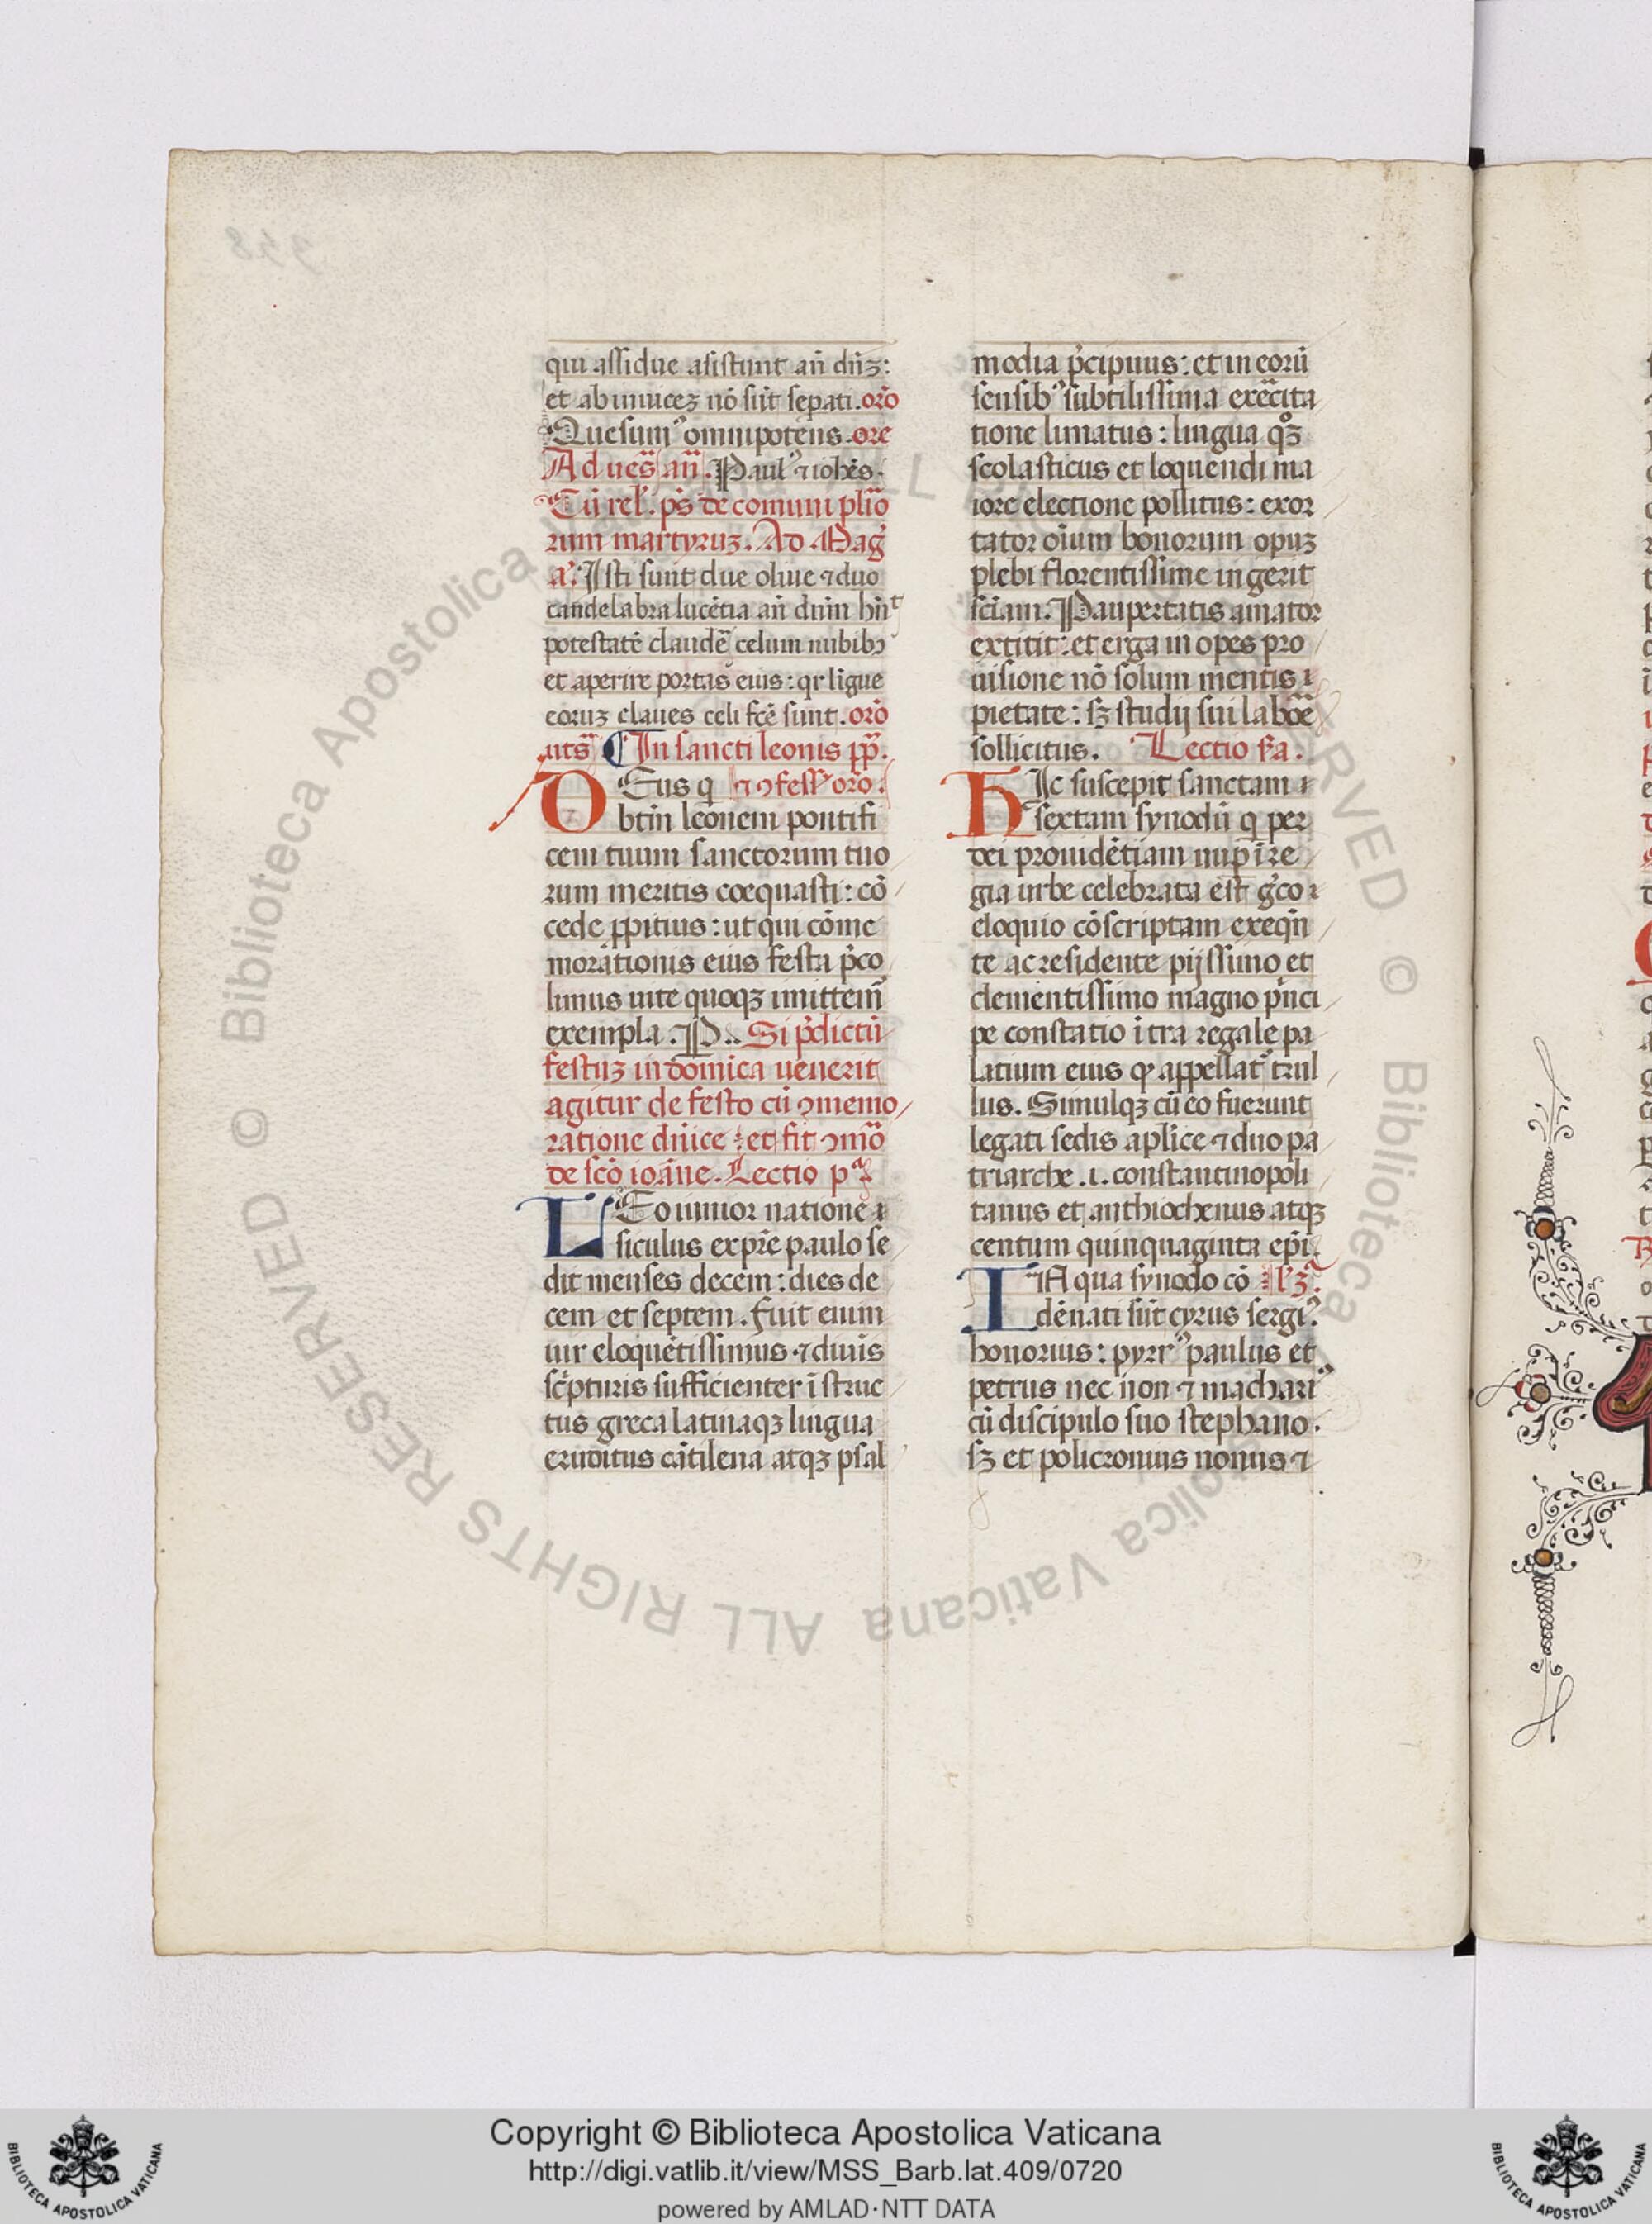 qui assidue asistunt an̄ dn̄ꝫ:
et ab inuiceꝫ nō sūt sepati. orō
Quesumꝰ omnipotens. ore
Ad ues̄ an̄. Paulꝰ ⁊ iohēs.
Cū rel'. ps̄ de comuni pliō
rum martyruꝫ. Ad Maḡ
a'. Isti sunt due oliue ⁊ duo
candelabra lucētia an̄ dnm̄ hn̄t
potestatē claudē celum nubibꝫ
et aperire portas eius: qr ligue
eoruꝫ claues celi fcē sunt. orō
uts̄ ¶ In sancti leonis pp̄.
DEus q ⁊ ꝯfess' orō.
btm̄ leonem pontifi
cem tuum sanctorum tuo
rum meritis coequasti: cō
cede ꝓpitius: ut qui cōme
morationis eius festa p̄co
limus uite quoqꝫ imittemꝰ
exempla. P. Si p̄dictū
festuꝫ in domīca uenerit
agitur de festo cū ꝯmemo
ratione dn̄ice: et fit ꝯmō
de scō ioāne. Lectio pᵃ
LEo iunior natione
siculus ex pr̄e paulo se
dit menses decem: dies de
cem et septem. Fuit enim
uir eloquētissimus ⁊ diuīs
sc̄pturis sufficienter īstruc
tus greca latinaqꝫ lingua
eruditus cātilena atqꝫ psal
modia p̄cipuus: et in eorū
sensibꝰ subtilissima exercita
tione limatus: lingua qꝫ
scolasticus et loquendi ma
iore electione pollitus: exor
tator oīum bonorum opuꝫ
plebi florentissime ingerit
sciam. Paupertatis amator
extitit: et erga inopes pro
uisione nō solum mentis
pietate: sꝫ studij sui laboē
sollicitus. Lectio s̄a.
HIc suscepit sanctam
sextam synodū q per
dei prouidētiam nup ī re
gia urbe celebrata est gco
eloquio cōscriptam exeqn̄
te ac residente pijssimo et
clementissimo magno p̄nci
pe constatio ītra regale pa
latium eius qꝫ appellatꝰ trul
lus. Simulqꝫ cū eo fuerunt
legati sedis aplice ⁊ duo pa
triarche .i. constantinopoli
tanus et anthiochenus atqꝫ
centum quinquaginta epī.
IN qua synodo cō l' ꝫᵃ.
dēnati sūt cyrus sergiꝰ.
honorius: pyrrꝰ paulus et
petrus nec non ⁊ machariꝰ
cū discipulo suo stephano.
sꝫ et policronius nouus ⁊
Copyright © Biblioteca Apostolica Vaticana
http://digi.vatlib.it/view/MSS_Barb.lat.409/0720
powered by AMLAD·NTT DATA
BIBLIOTECA APOSTOLICA VATICANA
BIBLIOTECA APOSTOLICA VATICANA
© Biblioteca Apostolica Vaticana ALL RIGHTS RESERVED